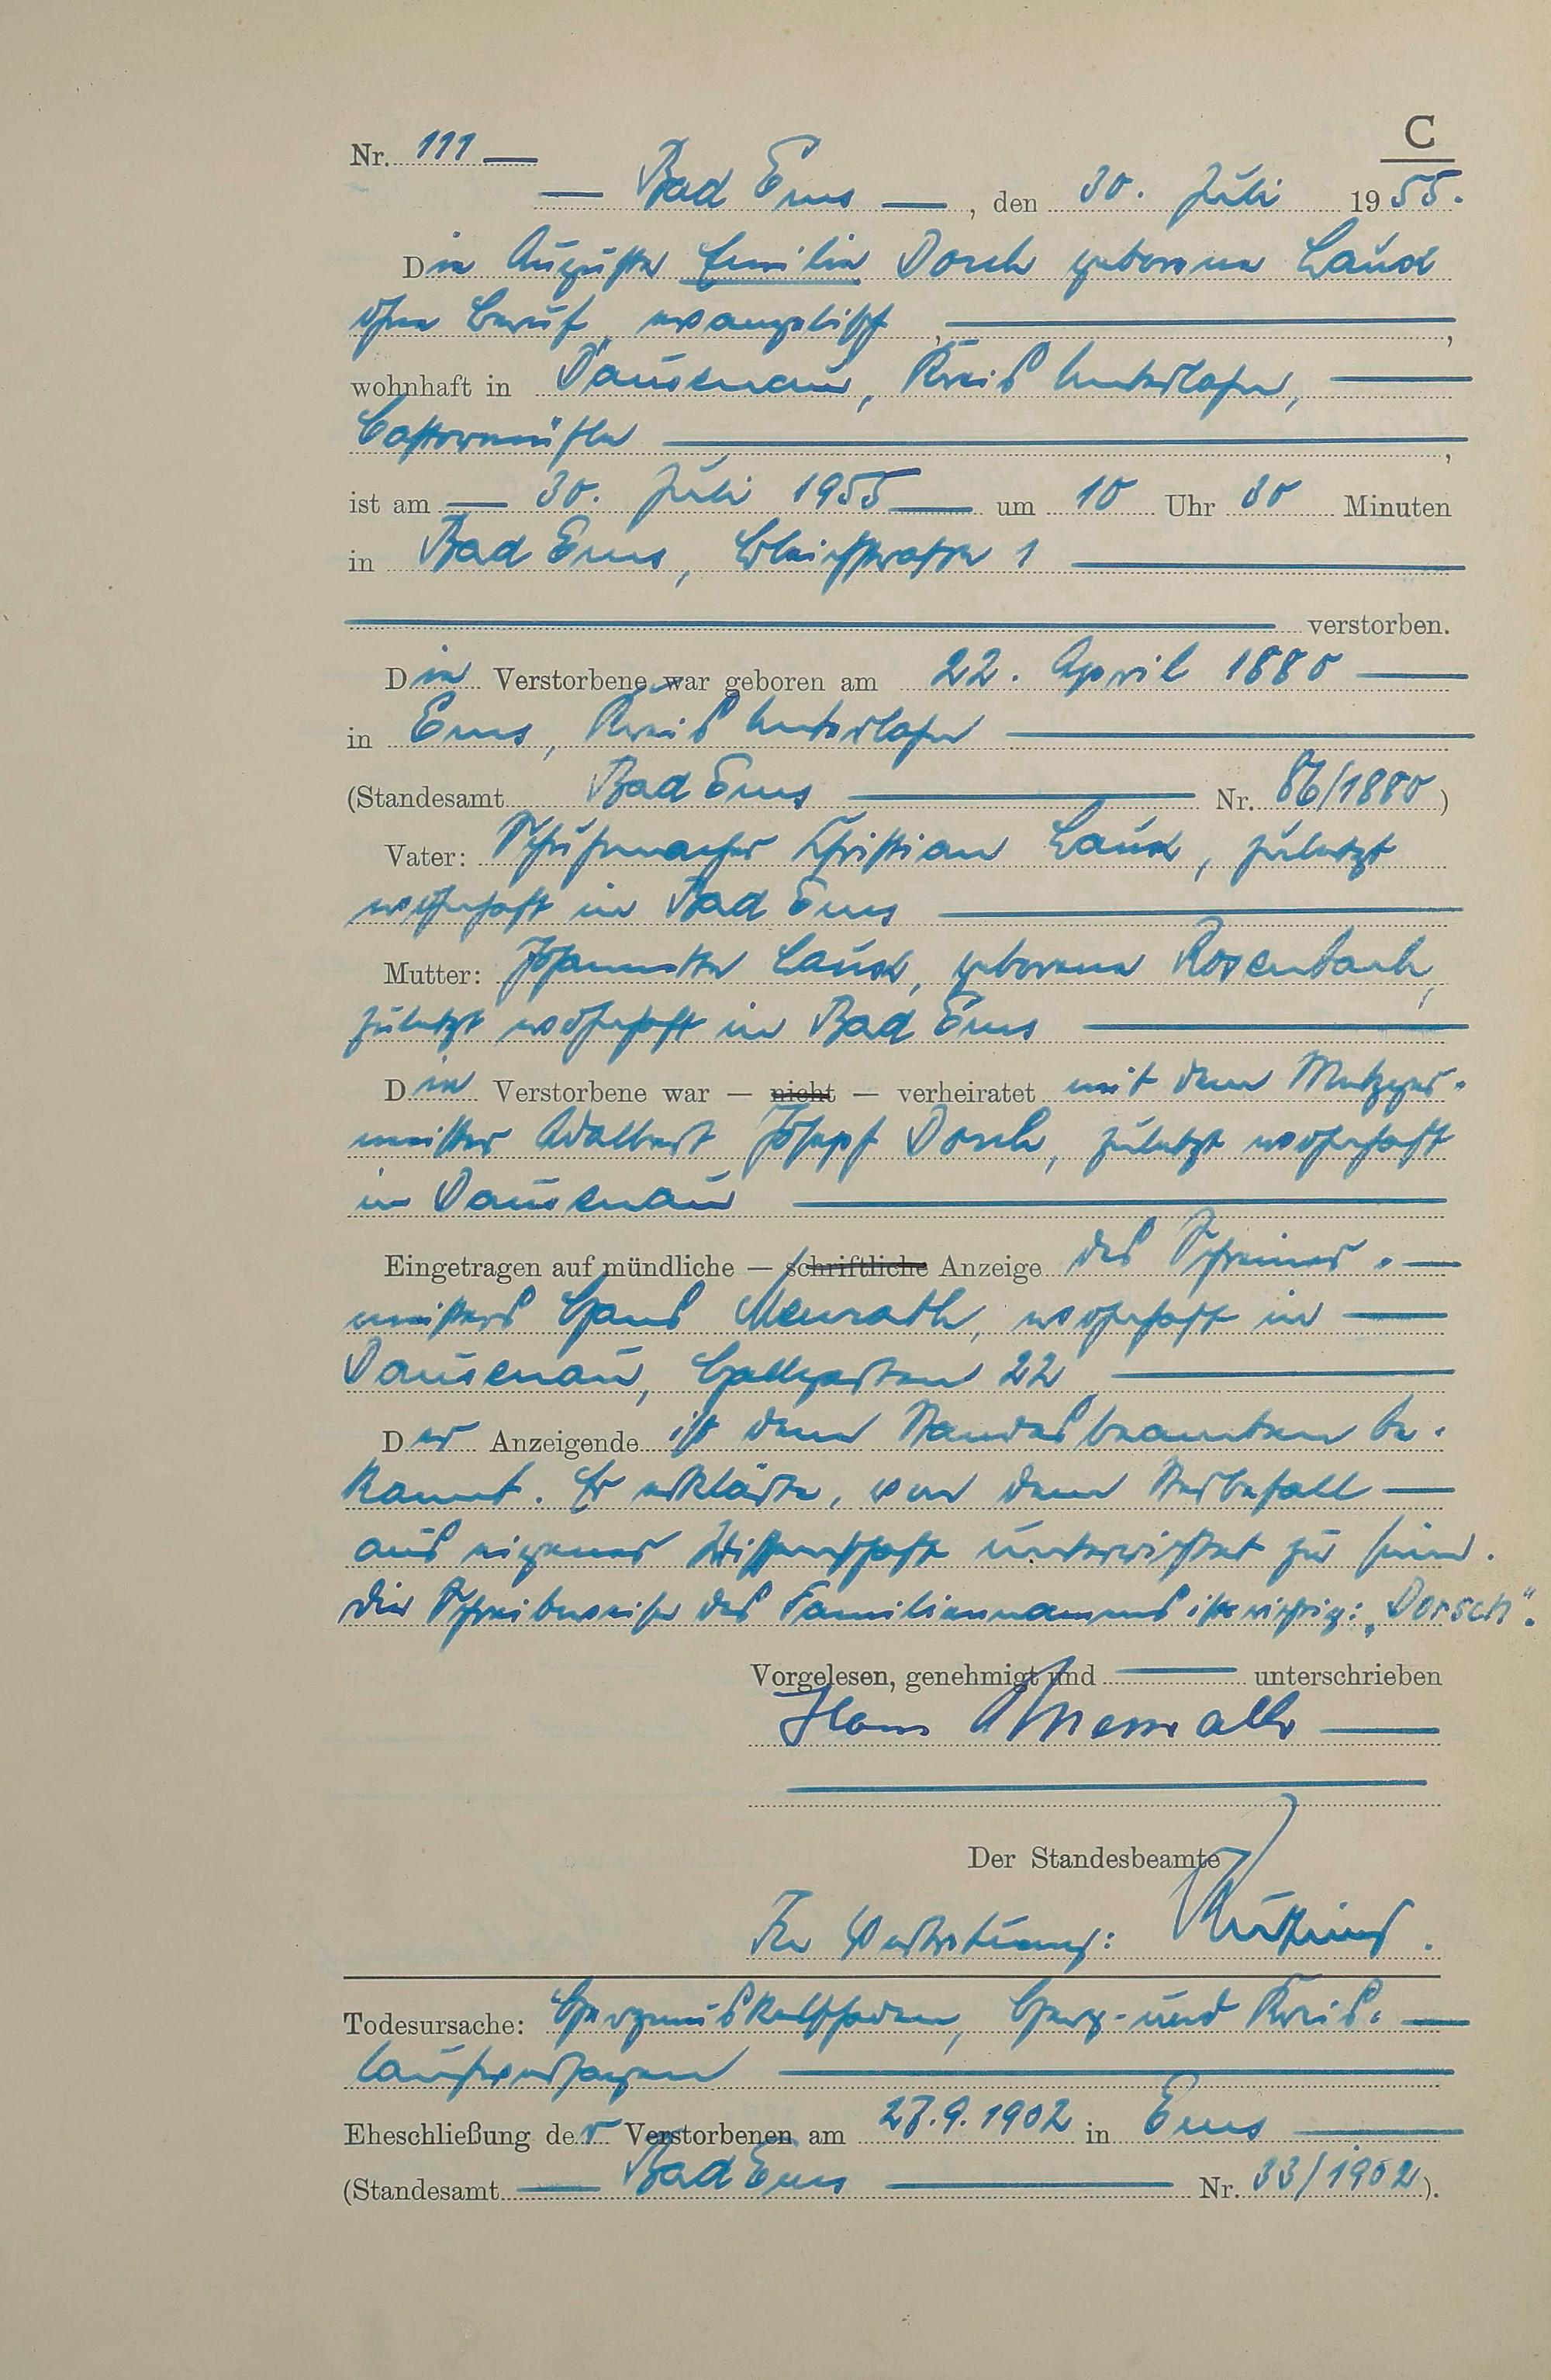 C
Nr. 111
Bad Ems, den 30. Juli 1955.
Die Auguste Emilie Dorsch geborene Lauck
ohne Beruf, evangelisch,
wohnhaft in Dausenau, Kreis Unterlahn,
,
ist am 30. Juli 1955 um 10 Uhr 30 Minuten
in Bad Ems, Bleichstrasse 1
verstorben.
Die Verstorbene war geboren am 22. April 1880
in Ems, Kreis Unterlahn
(Standesamt Bad Ems Nr. 86/1880)
Vater: Schuhmacher Christian Lauck, zuletzt
wohnhaft in Bad Ems
Mutter: Johannette Lauck, geborene Rosenbach,
zuletzt wohnhaft in Bad Ems
Die Verstorbene war — nicht — verheiratet mit dem Metzger-
meister Adalbert Josepf Dorsch, zuletzt wohnhaft
in Dausenau
Eingetragen auf mündliche — schriftliche Anzeige des Schreiner-
meisters Hans Menrath, wohnhaft in
Dausenau, Hallgarten 22
Der Anzeigende ist dem Standesbeamten be-
kannt. Er erklärte, von dem Sterbefall
aus eigener Wissenschaft unterrichtet zu sein.
Die Schreibweise des Familiennamens ist richtig: „Dorsch".
Vorgelesen, genehmigt und unterschrieben
Hans Menrath
Der Standesbeamte
In Vertretung:
Todesursache: Herzmuskelschaden, Herz- und Kreis-
laufversagen
Eheschließung der Verstorbenen am 27.9.1902 in Ems
(Standesamt Bad Ems Nr. 33/1902).